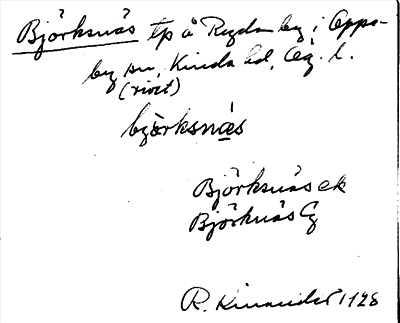 Björksnäs tp å Rydsn by i Oppe-
by sn, Kinda hd, Ög. l.
(rivet)
byörksnäs
Björksnäs ek
Björknäs Eg
R. Kinander 1928